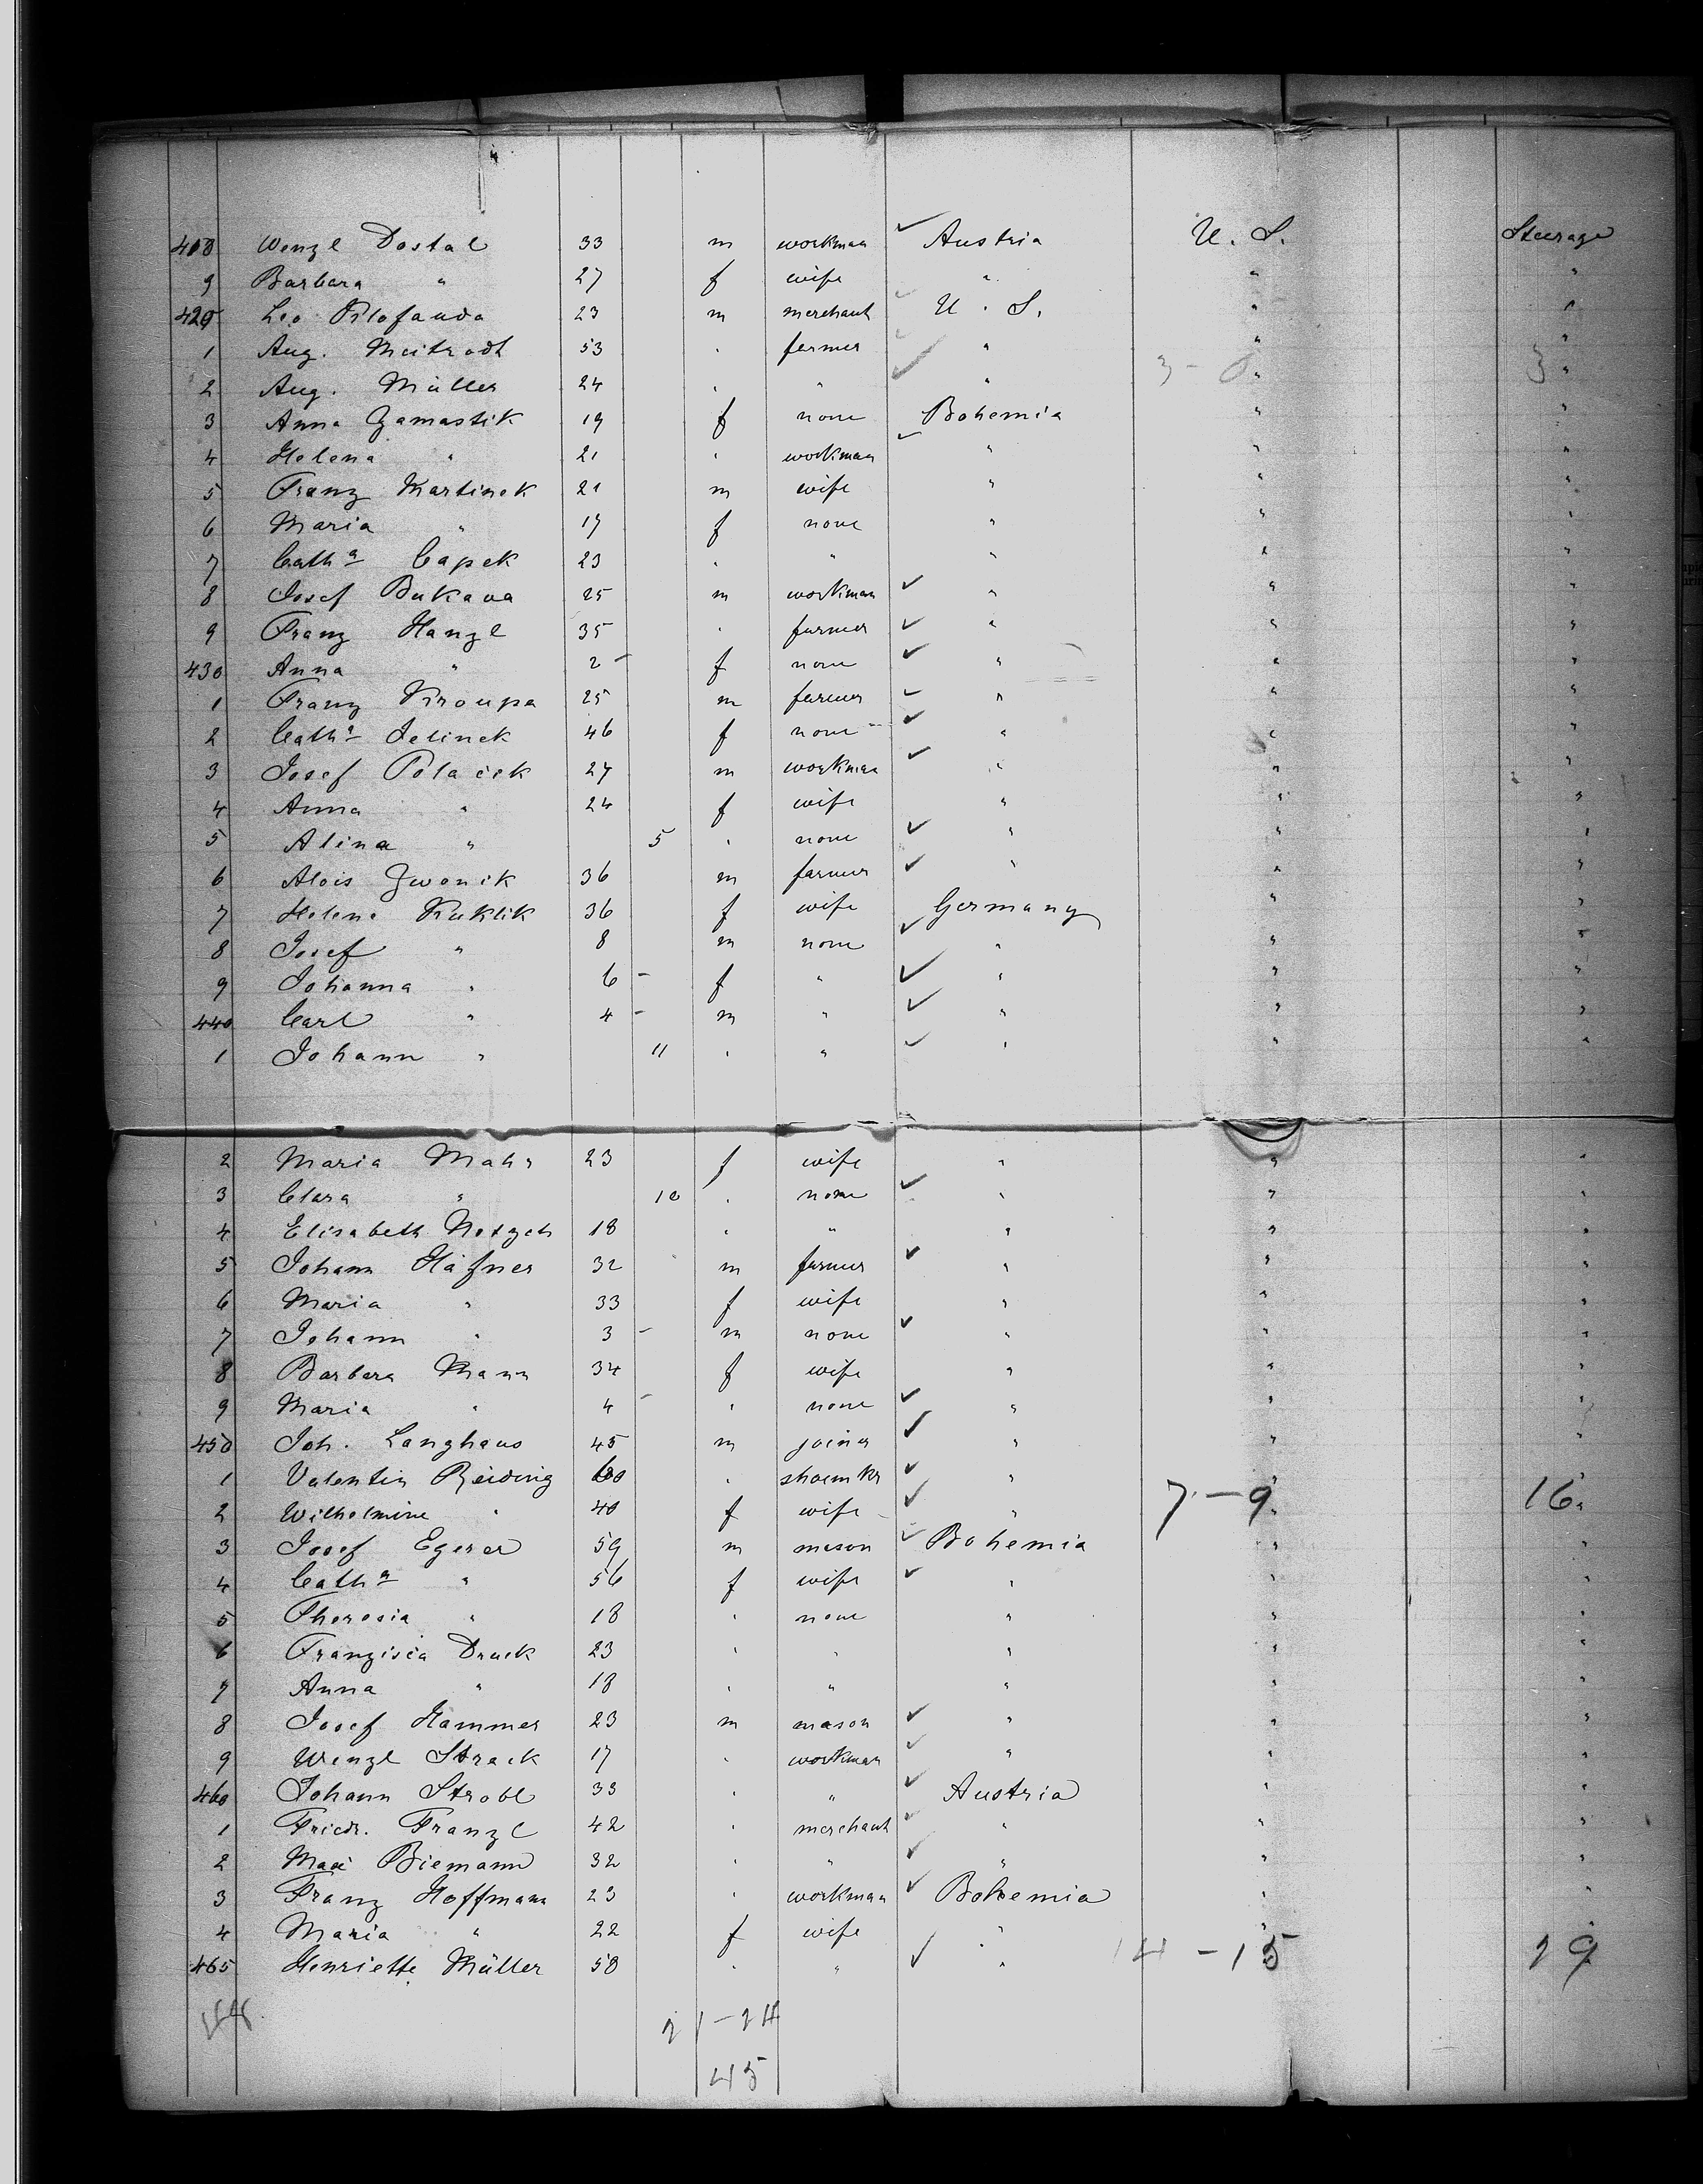 418 Wenzl Dostal 33 m workman Austria U. S. Steerage
9 Barbara " 27 f wife " " "
420 Leo 23 m merchant U. S. " "
1 Aug. 53 " farmer " " "
2 Aug. Müller 24 " " " 3 - 0 " 3 "
3 Anna Zamastik 19 f none Bohemia " "
4 Helena " 21 " workman " " "
5 Franz Martinek 21 m wife " " "
6 Maria " 19 f none " " "
7 Catha Capek 23 " " " " "
8 Josef Bukava 25 m workman " " "
9 Franz Hanzl 35 " farmer " " "
430 Anna " 2 - f none " " "
1 Franz Kroupa 25 m farmer " " "
2 Catha Jelinek 46 f none " " "
3 Josef Polacek 27 m workman " " "
4 Anna " 24 f wife " " "
5 Alina " 5 " none " " "
6 Alois Zwonik 36 m farmer " " "
7 Helene Kuklik 36 f wife Germany " "
8 Josef " 8 m none " " "
9 Johanna " 6 - f " " " "
440 Carl " 4 - m " " " "
1 Johann " 11 " " " " "
2 Maria Mahr 23 f wife " " "
3 Clara " 10 " none " " "
4 Elisabeth 18 " " " " "
5 Johann Häfner 32 m farmer " " "
6 Maria " 33 f wife " " "
7 Johann " 3 - m none " " "
8 Barbara Mann 34 f wife " " "
9 Maria " 4 - " none " " "
450 Joh. Langhaus 45 m joiner " " "
1 Valentin Reiding 60 " shoemkr " " "
2 Wilhelmine " 40 f wife " 7 - 9 " 16 "
3 Josef Egerer 59 m mason Bohemia " "
4 Catha " 56 f wife " " "
5 Theresia " 18 " none " " "
6 Franzisca 23 " " " " "
7 Anna " 18 " " " " "
8 Josef Hammer 23 m mason " " "
9 Wenzl 17 " workman " " "
460 Johann Strobl 33 " " Austria " "
1 Friedr. Franzl 42 " merchant " " "
2 Max Biemann 32 " " " " "
3 Franz Hoffmann 23 " workman Bohemia " "
4 Maria " 22 f wife " " "
465 Henriette Müller 58 " " " 14 - 15 29
21 - 24
45